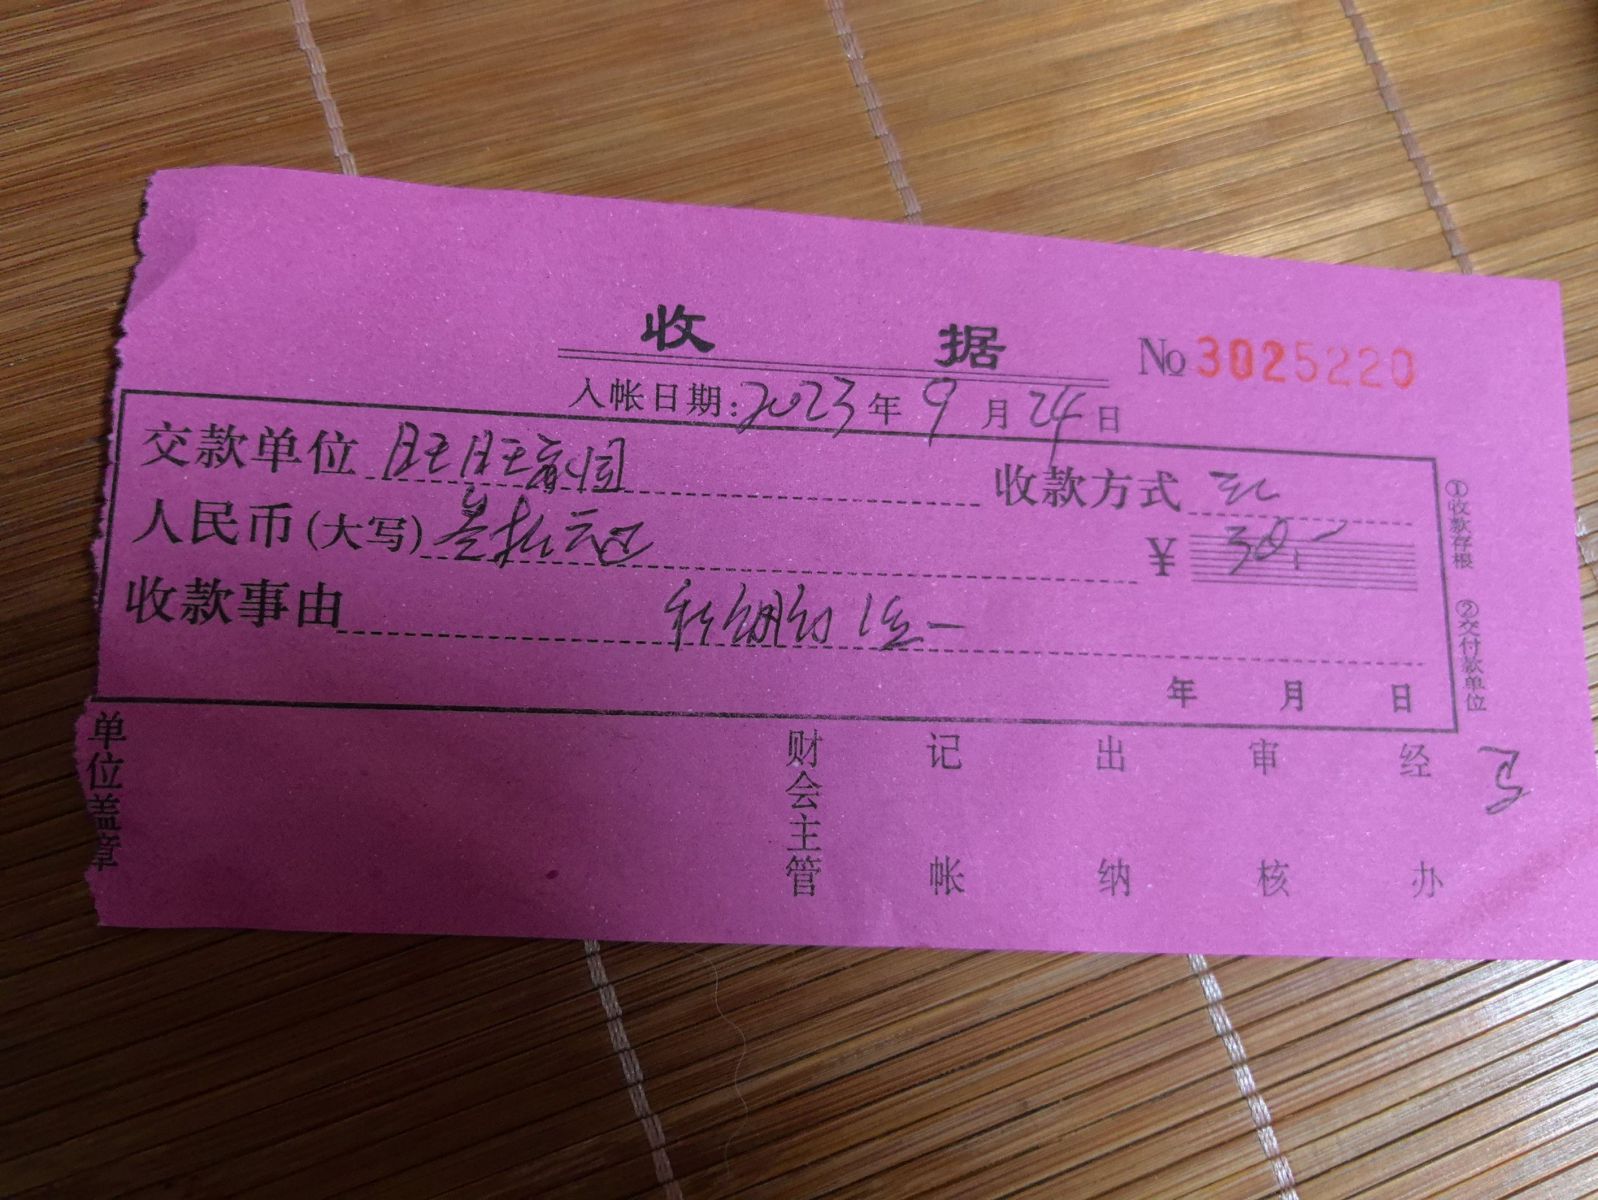 收 据 No 3025220
入帐日期:2023年9月24日
交款单位 旺旺家园 收款方式
人民币(大写) 叁拾元
¥ 30.一
收款事由
年 月 日
①收款存根 ②交付款单位
单位盖章 财会主管 记帐 出纳 审核 经办